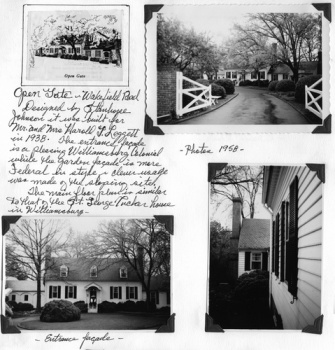 Open Gate
"Open Gate" - Wakefield Road
Designed by Stanhope
Johnson it was built for
Mr. and Mrs. Harell F. Leggett
in 1938. The entrance façade
is a pleasing Williamsburg Colonial
while the garden façade is more
Federal in style - clever usage
was made of the sloping site.
The main floor plan is similar
to that of the St. George Tucker House
in Williamsburg -
- Photos 1958 -
- Entrance façade -